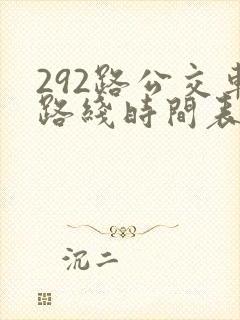 292路公交車
路綫時間表
沉二